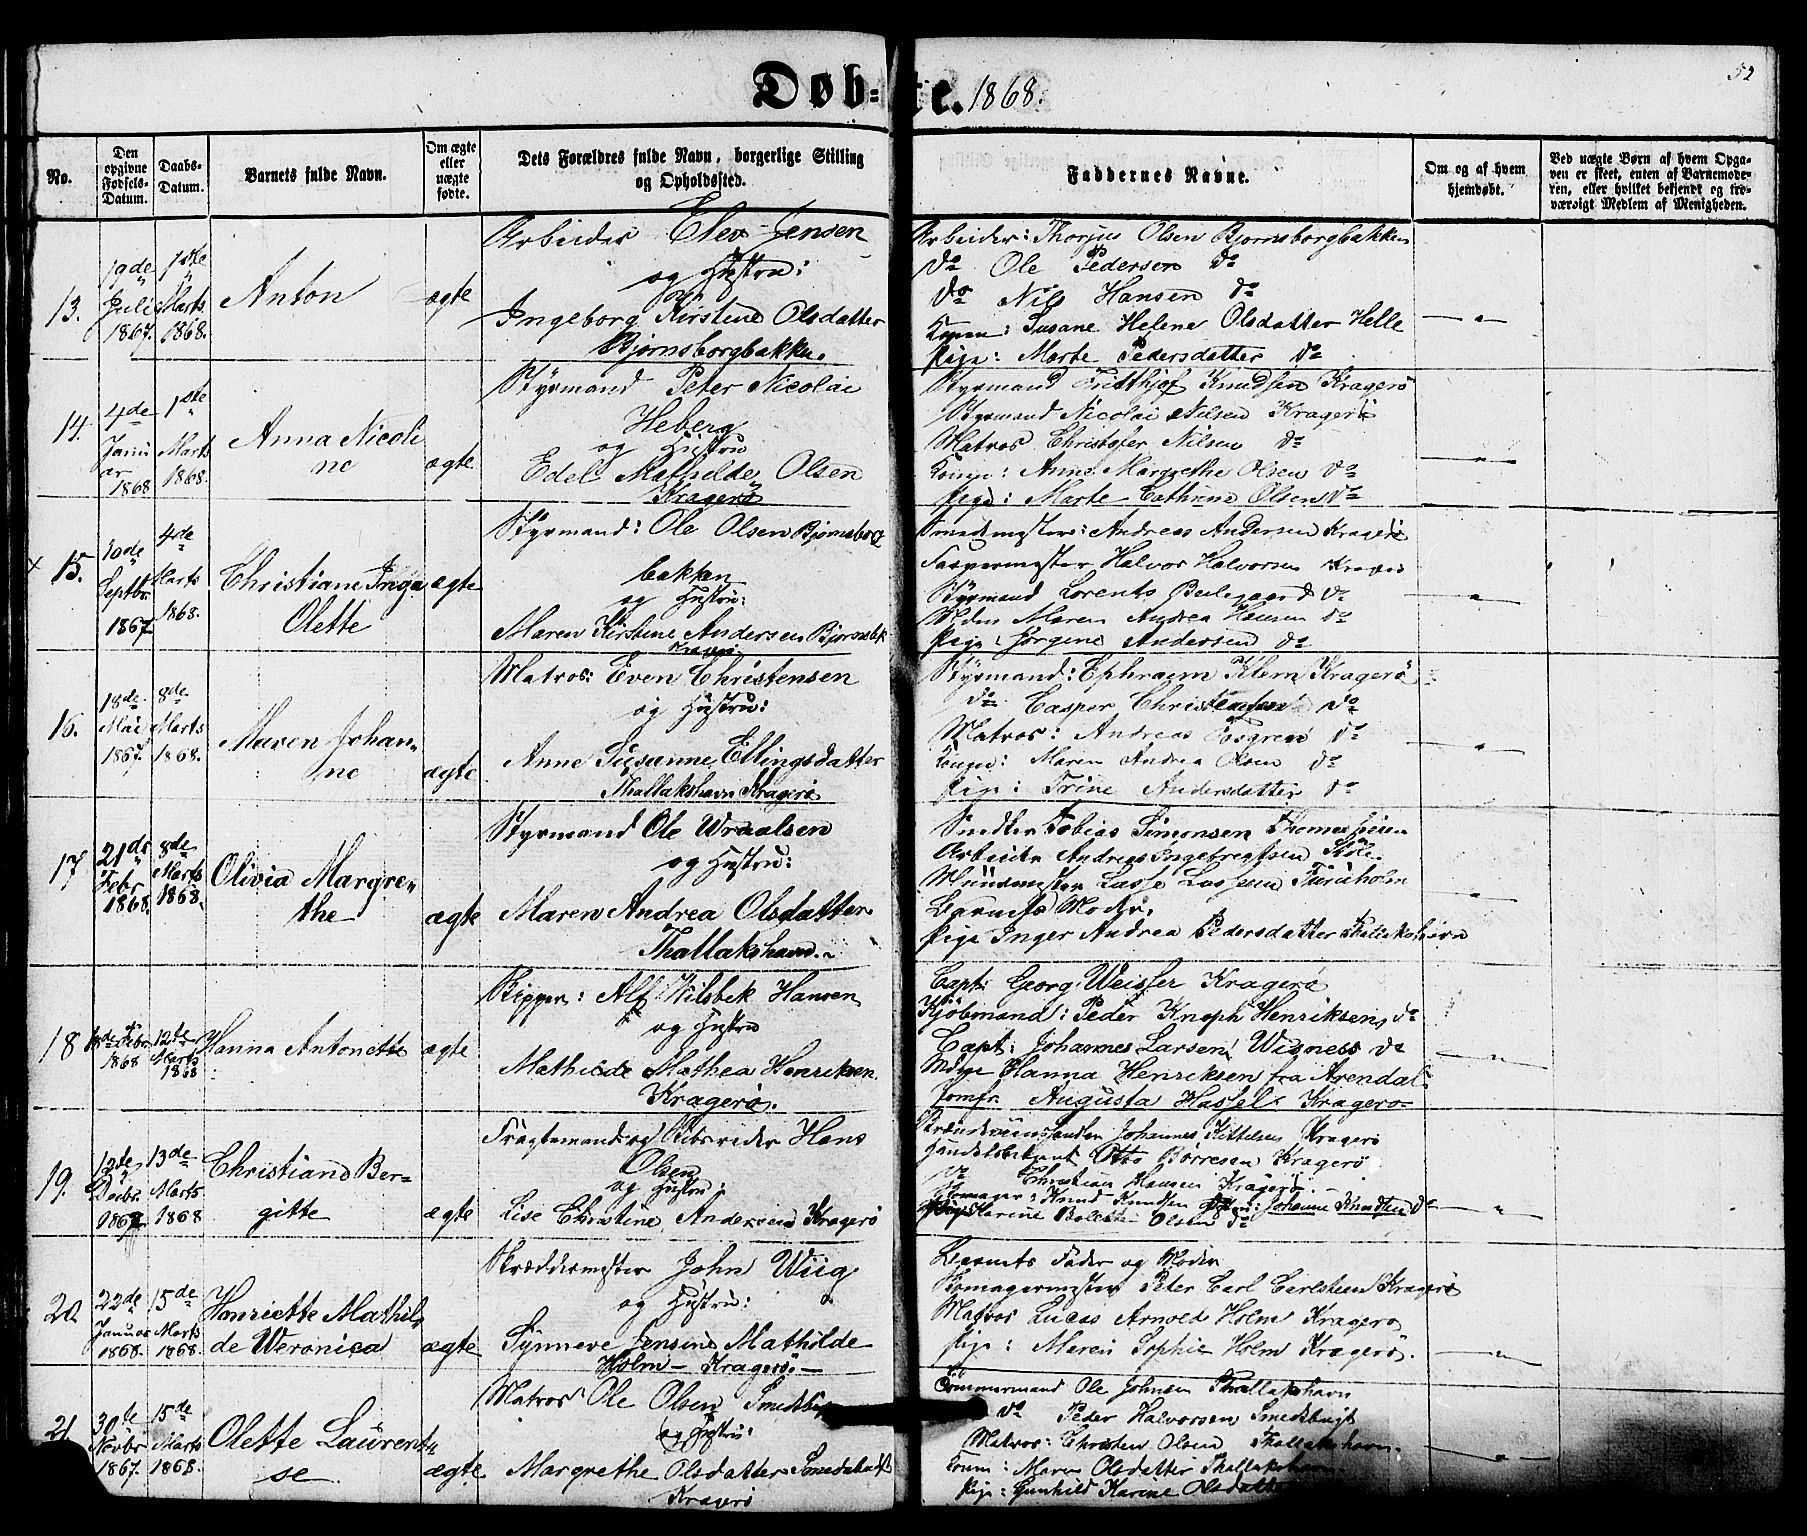 Døb-te. 1868.
52
No.
Den opgivne Fødsels-Datum.
Daabs-Datum.
Barnets fulde Navn.
Om ægte eller uægte fødte.
Dets Forældres fulde Navn, borgerlige Stilling og Opholdssted.
Faddernes Navne.
Om og af hvem hjemdøbt.
Ved uægte Børn af hvem Opga-
ven er skeet, enten af Barnemode-
ren, eller hvilket bekjendt og tro-
værdigt Medlem af Menigheden.
13.
19de Juli 1867.
1ste Marts 1868.
Anton
ægte
Arbeider Elev Jensen
og Hustru:
Ingeborg Kirstine Olsdatter
Bjornsborgbakken.
Arbeider: Thorjus Olsen Bjornsborgbakken
do Ole Pedersen do
do Nils Hansen do
Konen: Susane Helene Olsdatter Helle
Pige: Marte Pedersdatter do
14.
4de Januar 1868
1ste Marts 1868.
Anna Nicoli
ne
ægte
Styrmand Peter Nicolai
Heberg
og Hustru
Edel Mathilde Olsen
Kragerø
Styrmand Fritthjof Knudsen Kragerø
Styrmand Nicolai Nilsen Kragerø
Matros Christofer Nilsen do
Konen: Anne Margrethe Olsen do
Pige: Marte Cathrine Olsen do
x 15.
10de Septbr. 1867
4de Marts 1868.
Christiane Inga
Olette
ægte
Styrmand: Ole Olsen Bjornsborg
bakken
og Hustru:
Maren Kirstine Andersen Bjornsbk
Smedmester: Andreas Andersen Kragerø
Halvor Halvorsen
Styrmand Lorents do
Maren Andrea Hansen do
Pige: Jørgine Andersen do
16.
18de Mai 1867.
8de Marts 1868.
Maren Johan-
ne
ægte
Matros: Even Christensen
og Hustru:
Anne Susanne Ellingsdatter
Thallakshavn Kragerø
Styrmand: Ephraim Klem Kragerø
do Casper Christensen do
Matros: Andreas do
Konen: Maren Andrea Olsen do
Pige: Trine Andersdatter do
17
21de Febr 1868.
8de Marts 1868.
Olivia Margre-
the
ægte
Styrmand Ole Wraalsen
og Hustru:
Maren Andrea Olsdatter
Thallakshavn.
Tobias Simonsen
Arbeider Andreas Ingebregtsen
Lasse Lassesen Furuholm
Barnets Moder.
Pige Inger Andrea Pedersdatter Thallakshavn
18
18de Febr. 1868
12te Marts 1868
Hanna Antonette
ægte
Skipper: Alf Nilsbek Hansen
og Hustru
Mathilde Mathea Henriksen
Kragerø.
Capt: Georg Weisser Kragerø
Kjøbmand: Peder Knoph Henriksen do
Capt: Johannes Larsen Wisness do
Hanna Henriksen fra Arendal
Jomfr. Augusta Hassel Kragerø
19.
12de Decbr. 1867
13de Marts 1868
Christiane Ber-
gitte
ægte
Fragtemand og Hans
Olsen
og Hustru:
Lise Christine Andersen Kragerø
Johannes Kittelsen Kragerø
Otto Børresen Kragerø
do Christian Hansen Kragerø
Knud Knudsen Johanne Knudsen do
Pige Karine Bolette Olsen do
20.
22de Januar 1868.
15de Marts 1868.
Henriette Mathil-
de Weronica
ægte
Skræddermester John Wiig
og Hustru:
Synneve Jensine Mathilde
Holm - Kragerø. -
Barnets Fader og Moder
Skomagermester Peter Carl Carlsen Kragerø
Matros Lucas Arnold Holm Kragerø
Pige: Maren Sophie Holm Kragerø.
21
30te Novbr 1867.
15de Marts 1868.
Olette Laurent-
se
ægte
Matros Ole Olsen
og Hustru:
Margrethe Olsdatter
Kragerø
Tømmermand Ole Johnsen Thallakshavn
do Peder Halvorsen Smedsbugt
Matros: Christen Olsen Thallakshavn.
Konen: Maren Olsdatter Thallakshavn
Pige: Gunhild Karine Olsdatter